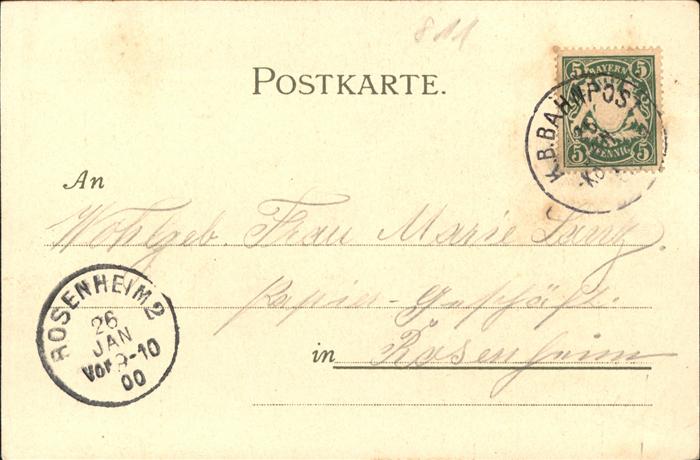 811
POSTKARTE.
5 BAYERN 5
5 PFENNIG 5
K.B.BAHNPOST
An
Wohlgeb. Frau Marie
Papier-Geschäft
in Rosenheim
ROSENHEIM 2
26
JAN
Vor 9-10
00